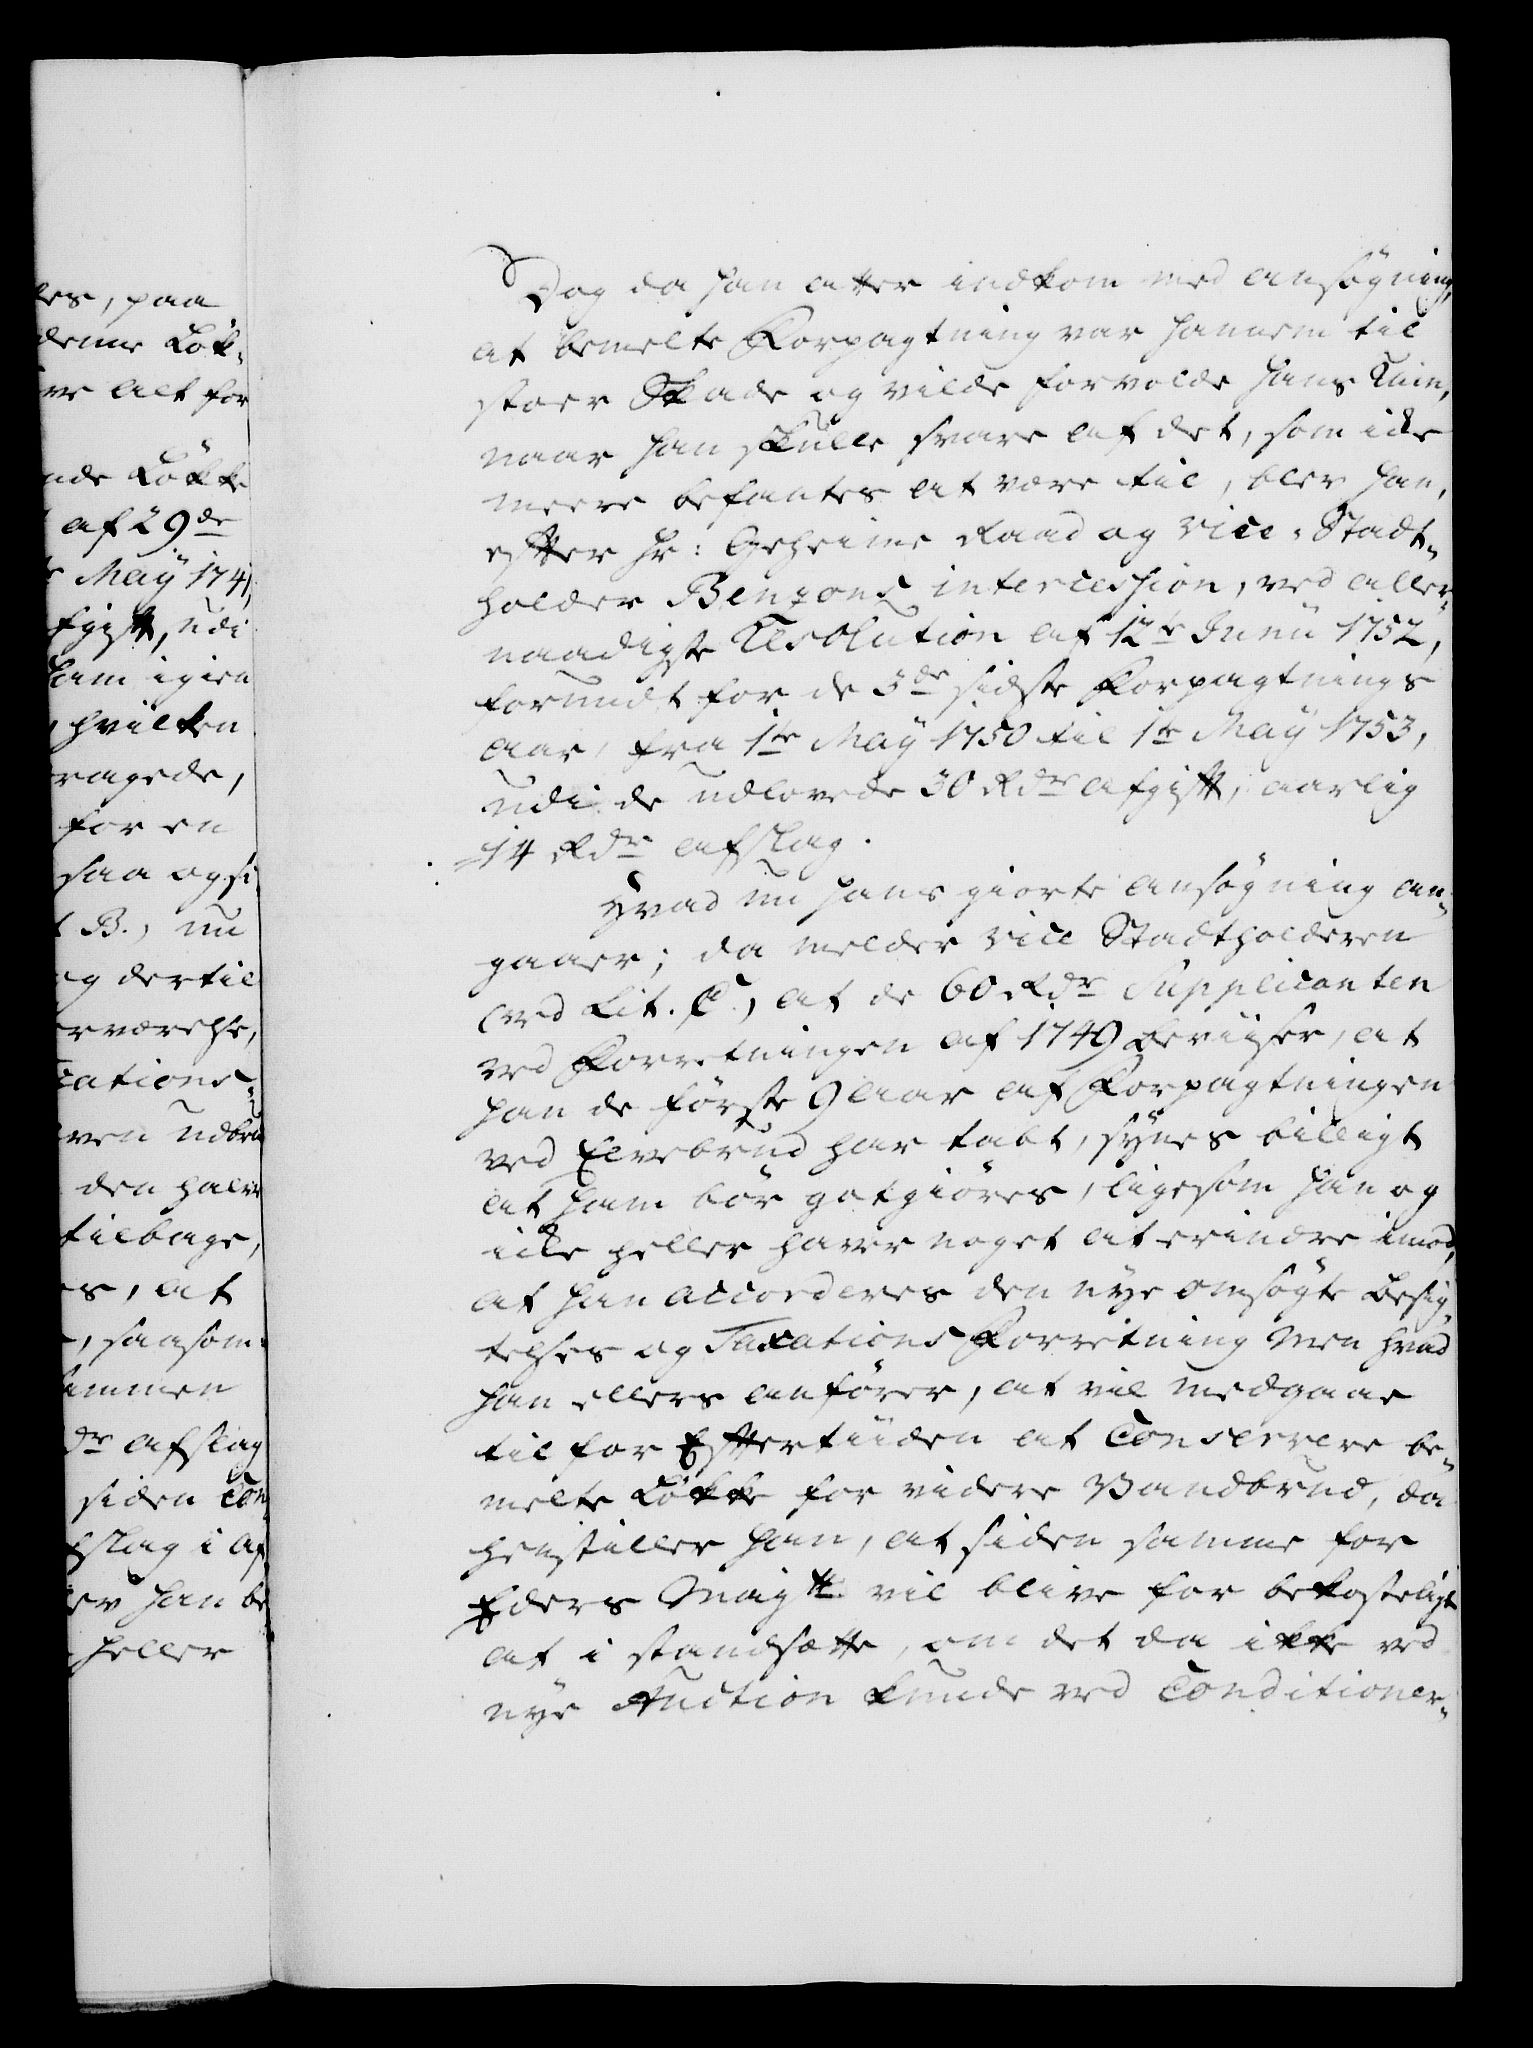 les, paa
denne Løk-
re alt for
nde Løkke
af 29de
May 1741,
fgift, udi
ham igien
, hvilken
ragede,
for en
saa og si
B., nu
g dertil
rværelse,
xations-
ven udbru
den halve
tilbage,
s, at
, saasom
ammen
dr afslag
siden Con
fslag i Af
er han be
heller
Dog da han atter indkom med ansøgning,
at bemelte Forpagtning var hannem til
stoer Skade og vilde forvolde hans Ruin,
naar han skulle svare af det, som icke
meere befantes at være til, blev han,
efter Hr: Geheime Raad og Vice-Stadt-
holder Benzons intercession, ved aller-
naadigste Resolution af 12te Junii 1752,
forundt for de 3de sidste Forpagtnings
aar, fra 1te May 1750 til 1te May 1753,
udi de udlovede 30 Rdr afgift, aarlig
14 Rdr afslag.
Hvad nu hans giorte ansøgning an-
gaaer; da melder Vice Stadtholderen
(ved Lit. C.) at de 60 Rdr Supplicanten
ved Forretningen af 1749 beviiser, at
han de første 9 aar af Forpagtningen
ved Elvebrud har tabt, synes billigt
at ham bør gotgiøres, ligesom han og
icke heller haver noget at erindre imod,
at han accorderes den nye omsøgte Besig-
telses og Taxations Forretning Men hvad
han ellers anfører, at vil medgaae
til for Eftertiiden at Conservere be-
melte Løkke for videre Vandbrud, da
henstiller han, at siden samme for
Eders Maytt vil blive for bekosteligt
at i standsætte, om det da ikke ved
nye Auction kunde ved Conditioner-